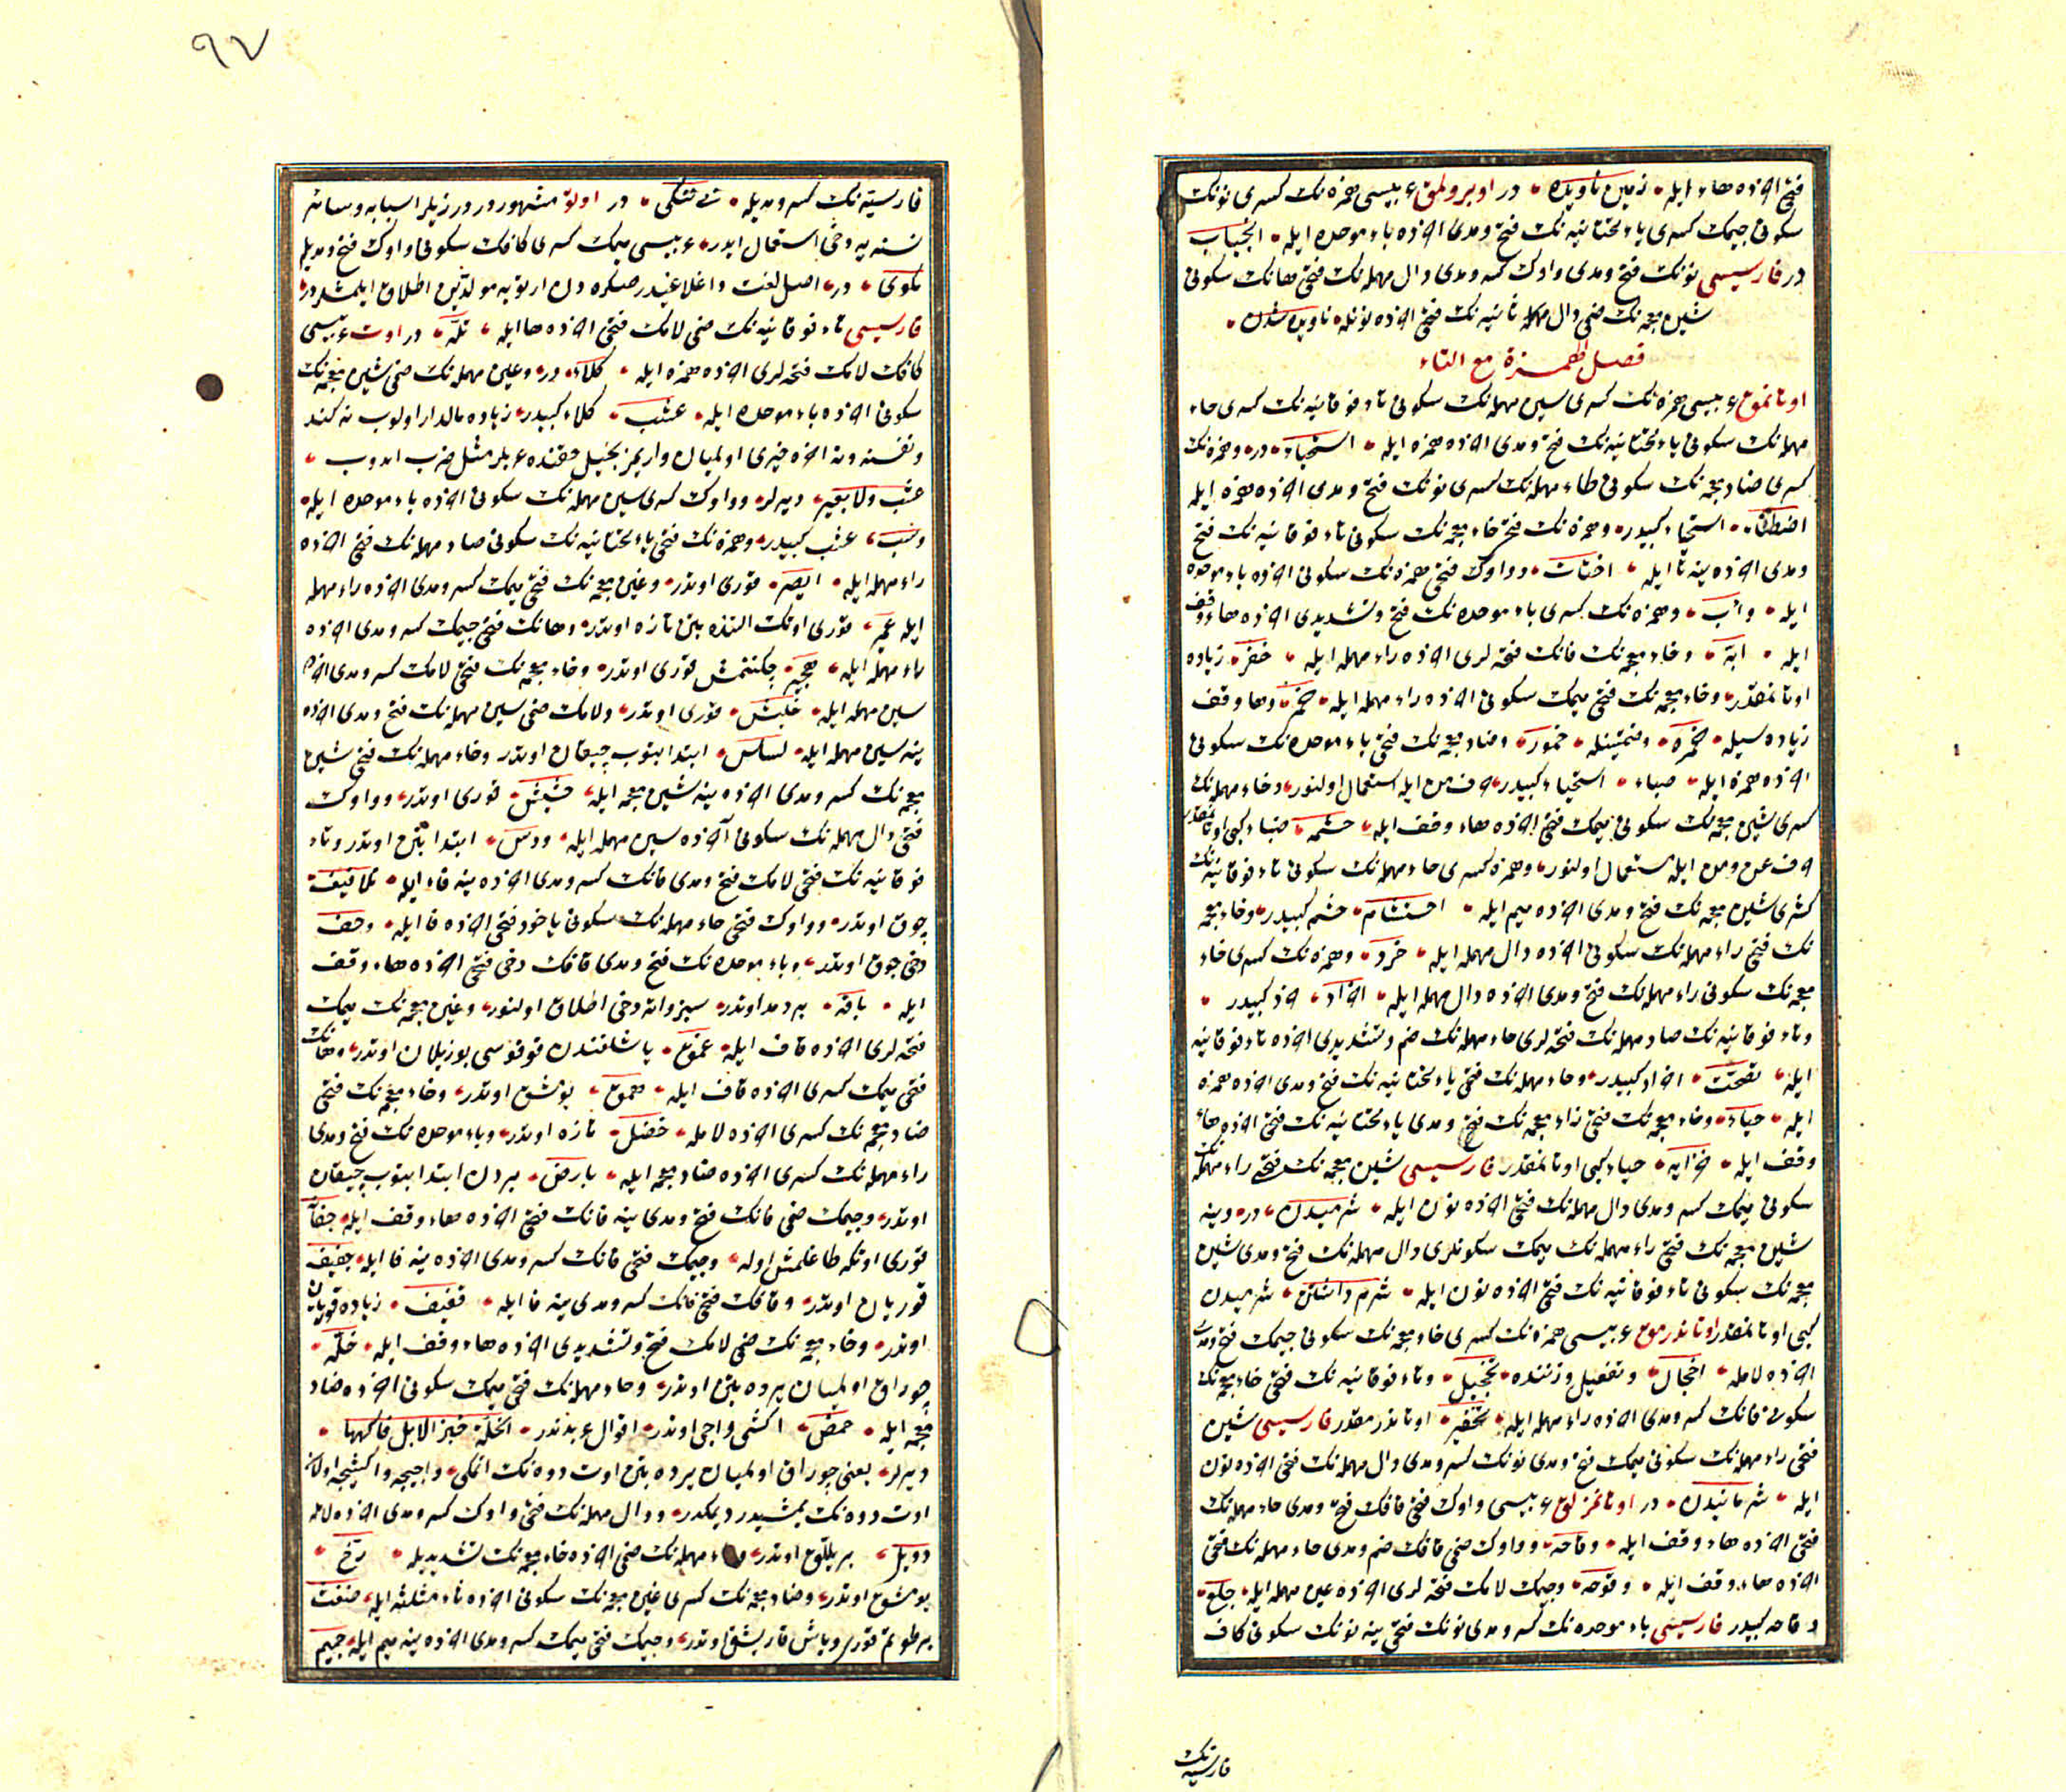 فتحی اخرنده هاء ایله زمین ناویده در اوبرولمق عربیسی همزه نک کسری نونک
سکونی جیمک کسری یاء تحتانیه نک فتح و مدی اخرنده باء موحده ایله انجیاب
در فارسیسی نونک فتح و مدی واوک کسر و مدی دال مهمله نک فتحی هانک سکونی
شین معجمه نک ضمی دال مهمله ثانیه نک فتحی اخرنده نونله ناویده شدن
فصل الهمزة مع التاء
اوتانمق عربیسی همزه نک کسری سین مهمله نک سکونی تاء فوقانیه نک کسری حاء
مهمله نک سکونی یاء تحتانیه نک فتح و مدی اخرنده همزه ایله استحیاء در وهمزه نک
کسری ضاد معجمه نک سکونی طاء مهمله نک کسری نونک فتح و مدی اخرنده همزه ایله
اضطناء استحیاء کبیدر وهمزه نک فتح خاء معجمه نک سکونی تاء فوقانیه نک فتح
ومدی اخرنده ینه تا ایله اختات وواوک فتحی همزه نک سکونی اخرنده باء موحده
ایله وأب وهمزه نک کسری باء موحده نک فتح و تشدیدی اخرنده هاء وقف
ایله ابة وخاء معجمه نک فانک فتحه لری اخرنده راء مهمله ایله خفر زیاده
اوتانمقدر وخاء معجمه نک فتحی میمک سکونی اخرنده راء مهمله ایله خمر وهاء وقف
زیاده سیله خمره وضمتینله خمور وضاد معجمه نک فتحی باء موحده نک سکونی
اخرنده همزه ایله ضباء استحیاء کبیدر حرف من ایله استعمال اولنور وحاء مهمله نک
کسری شین معجمه نک سکونی میمک فتحی اخرنده هاء وقف ایله حشمه ضباء کبی اوتانمقدر
حرف عن ومن ایله مستعمل اولنور وهمزه کسری حاء مهمله نک سکونی تاء فوقانیه نک
کسری شین معجمه نک فتح و مدی اخرنده میم ایله احتشام حشم کبیدر وخاء معجمه
نک فتحی راء مهمله نک سکونی اخرنده دال مهمله ایله خرد وهمزه نک کسری خاء
معجمه نک سکونی راء مهمله نک فتح و مدی اخرنده دال مهمله ایله اخراد خرد کبیدر
وتاء فوقانیه نک صاد مهمله نک فتحه لری حاء مهمله نک ضم و تشدیدی اخرنده تاء فوقانیه
ایله تصحت اخراد کبیدر وحاء مهمله نک فتحی یاء تحتانیه نک فتح و مدی اخرنده همزه
ایله حیاء وخاء معجمه نک فتحی زاء معجمه نک فتح و مدی یاء تحتانیه نک فتحی اخرنده هاء
وقف ایله خزایه حیاء کبی اوتانمقدر فارسیسی شین معجمه نک فتحی راء مهمله نک
سکونی میمک کسر و مدی دال مهمله نک فتحی اخرنده نون ایله شرمیدن در وینه
شین معجمه نک فتحی راء مهمله نک میمک سکونلری دال مهمله نک فتح و مدی شین
معجمه نک سکونی تاء فوقانیه نک فتحی اخرنده نون ایله شرم داشتن شرمیدن
کبی اوتانمقدر اوتاندرمق عربیسی همزه نک کسری خاء معجمه نک سکونی جیمک فتح و مدی
اخرنده لامله اخجال وتفعیل وزننده تخجیل وتاء فوقانیه نک فتحی خاء معجمه نک
سکونی فانک کسر و مدی اخرنده راء مهمله ایله تخفیر اوتاندرمقدر فارسیسی شین
فتحی راء مهمله نک سکونی میمک فتح و مدی نونک کسر و مدی دال مهمله نک فتحی اخرنده نون
ایله شرمانیدن در اوتانمزلق عربیسی واوک فتحی قافک فتح و مدی حاء مهمله نک
فتحی اخرنده هاء وقف ایله وقاحه وواوک ضمی قافک ضم و مدی حاء مهمله نک فتحی
اخرنده هاء وقف ایله وقوحه وجیمک لامک فتحه لری اخرنده عین مهمله ایله جلع
وقاحه کبیدر فارسیسی باء موحده نک کسر و مدی نونک فتحی ینه نونک سکونی کاف
فارسیه نک
٩٧
فارسیه نک کسر و مدیله بی ننکی در اولق مشهوردر وزیلر اسبابه وسائر
نسنه یه دخی استعمال ایدر عربیسی میمک کسری کافک سکونی واوک فتح و مدیله
مکوی در اصل لغت داغلاغیدر صکره دن ارتویه مولدین اطلاق ایلمشدر
فارسیسی تاء فوقانیه نک ضمی لامک فتحی اخرنده ها ایله تله در اوت عربیسی
کافک لامک فتحه لری اخرنده همزه ایله کلاء در وعین مهمله نک ضمی شین معجمه نک
سکونی اخرنده باء موحده ایله عشب کلاء کبیدر زیاده مالدار اولوب نه کند
ونفسنه ونه اخره خیری اولمیان واریمز بخیل حقنده عربلر مثل ضرب ایدوب
عشب ولا بعیر دیرلر وواوک کسری سین مهمله نک سکونی اخرنده باء موحده ایله
وسب عشب کبیدر وهمزه نک فتحی یاء تحتانیه نک سکونی صاد مهمله نک فتحی اخرنده
راء مهمله ایله ایصر قوری اوتدر وغین معجمه نک فتحی میمک کسر و مدی اخرنده راء مهمله
ایله غمیر قوری اوتک التنده بتن تازه اوتدر وهانک فتحی جیمک کسر و مدی اخرنده
راء مهمله ایله هجیر چکنمش قوری اوتدر وخاء معجمه نک فتحی لامک کسر و مدی اخرنده
سین مهمله ایله خلیس قوری اوتدر ولامک ضمی سین مهمله نک فتح و مدی اخرنده
ینه سین مهمله ایله لساس ابتدا بتوب چیقان اوتدر وحاء مهمله نک فتحی شین
معجمه نک کسر و مدی اخرنده ینه شین معجمه ایله حشیش قوری اوتدر وواوک
فتحی دال مهمله نک سکونی اخرنده سین مهمله ایله ودس ابتدا بتن اوتدر وتاء
فوقانیه نک فتحی لامک فتح و مدی فانک کسر و مدی اخرنده ینه فاء ایله تلافیف
چوق اوتدر وواوک فتحی حاء مهمله نک سکونی یاخود فتحی اخرنده فا ایله وحف
دخی چوق اوتدر وباء موحده نک فتح و مدی قافک دخی فتحی اخرنده هاء وقف
ایله باقه بر دمد اوتدر سبزواته دخی اطلاق اولنور وغین معجمه نک میمک
فتحه لری اخرنده قاف ایله غمق یاشلقندن قوقوسی بوزیلان اوتدر وهانک
فتحی میمک کسری اخرنده قاف ایله همق یومشق اوتدر وخاء معجمه نک فتحی
ضاد معجمه نک کسری اخرنده لامله خضل تازه اوتدر وباء موحده نک فتح و مدی
راء مهمله نک کسری اخرنده ضاد معجمه ایله بارض یردن ابتدا بتوب چیقان
اوتدر وجیمک ضمی فانک فتح و مدی ینه فانک فتحی اخرنده هاء وقف ایله جفافه
قوری اوتکه طاغلمش اوله وجیمک فتحی فانک کسر و مدی اخرنده ینه فا ایله جفیف
قوریان اوتدر وقافک فتحی فانک کسر و مدی ینه فا ایله قفیف زیاده قوریان
اوتدر وخاء معجمه نک ضمی لامک فتح و تشدیدی اخرنده هاء وقف ایله خله
چوراق اولمیان یرده بتن اوتدر وحاء مهمله نک فتحی میمک سکونی اخرنده ضاد
معجمه ایله حمض اکشی واجی اوتدر اقوال عربدندر الخلة خبز الابل فاکهتها
دیرلر یعنی چوراق اولمیان یرده بتن اوت دوه نک اتمکی واجیجه واکشیجه اولان
اوت دوه نک یمشیدر دیمکدر ودال مهمله نک فتحی واوک کسر و مدی اخرنده لامله
دویل بر یللق اوتدر وراء مهمله نک ضمی اخرنده خاء معجمه نک تشدیدیله رخ
یومشق اوتدر وضاد معجمه نک کسری غین معجمه نک سکونی اخرنده ثاء مثلثه ایله ضغث
بر طوتم قوری ویاش قاریشق اوتدر وجیمک فتحی میمک کسر و مدی اخرنده ینه میم ایله جمیم